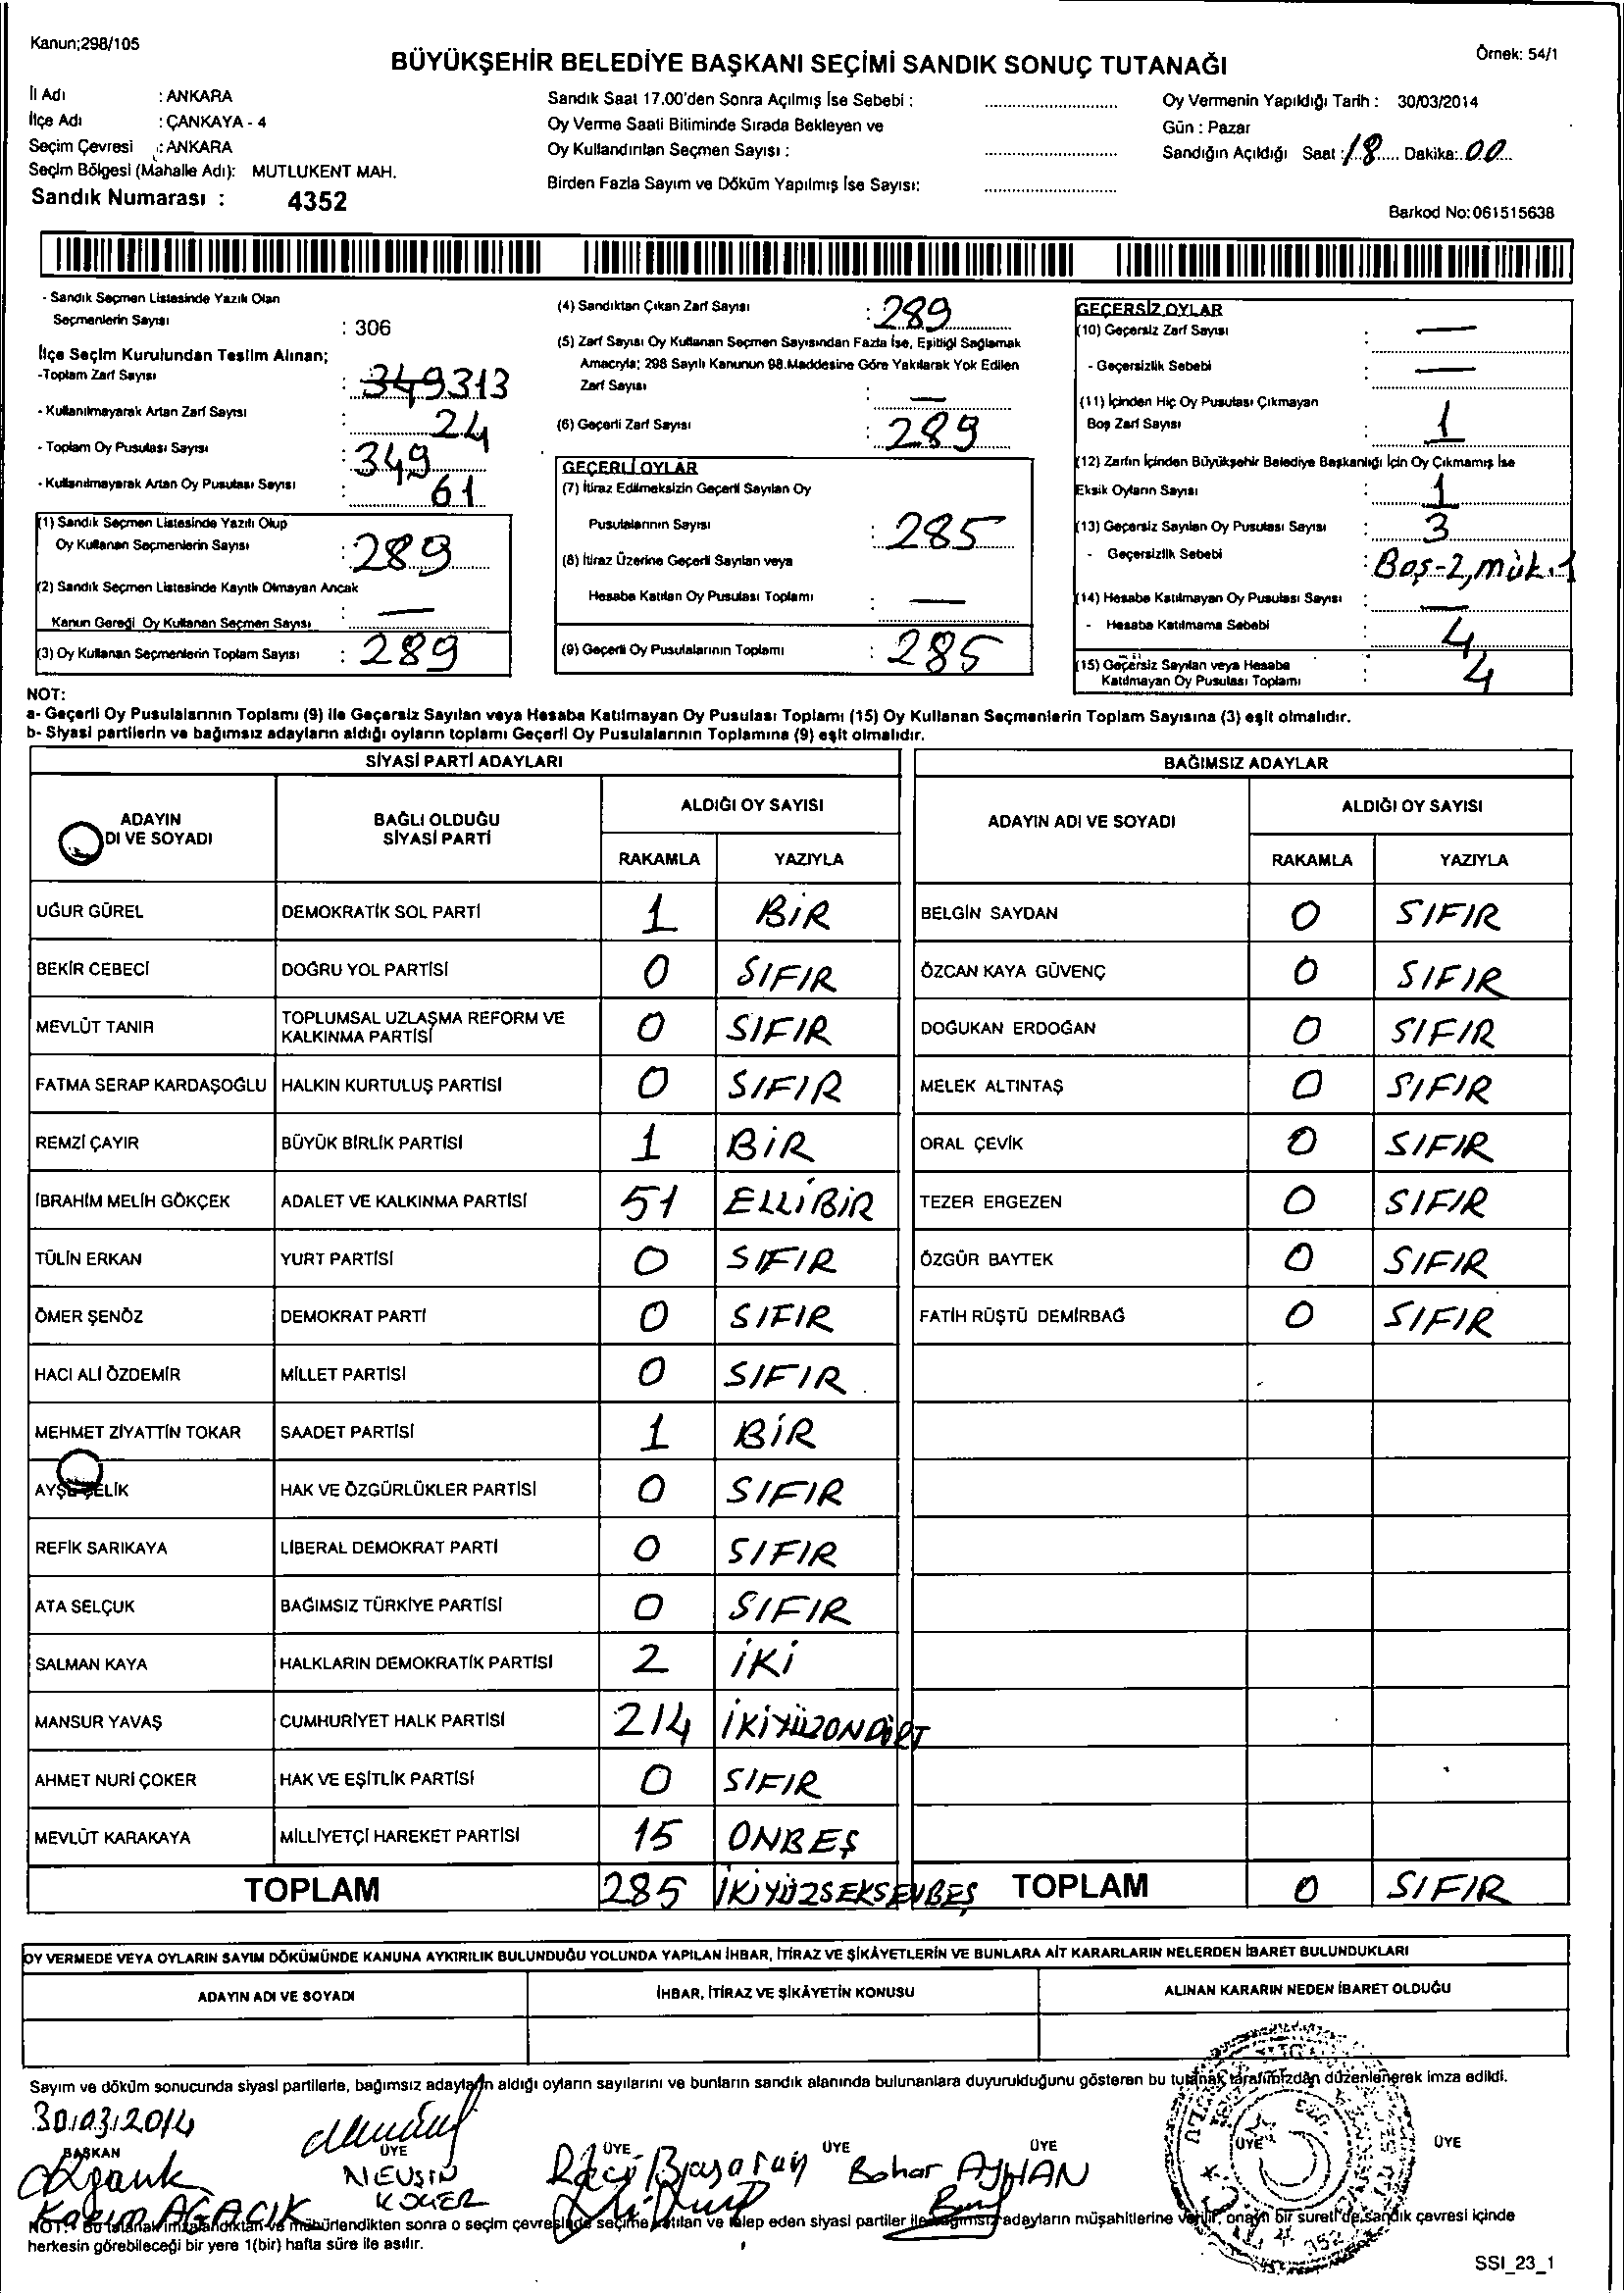 Kanun;298/105
BÜYÜKŞEHİR BELEDİYE BAŞKANI SEÇİMİ SANDIK SONUÇ TUTANAĞI
Örnek: 54/1
İl Adı : ANKARA
İlçe Adı : ÇANKAYA - 4
Seçim Çevresi : ANKARA
Seçim Bölgesi (Mahalle Adı): MUTLUKENT MAH.
Sandık Numarası : 4352
Sandık Saat 17.00'den Sonra Açılmış İse Sebebi :
Oy Verme Saati Bitiminde Sırada Bekleyen ve
Oy Kullandırılan Seçmen Sayısı :
Birden Fazla Sayım ve Döküm Yapılmış İse Sayısı:
Oy Vermenin Yapıldığı Tarih : 30/03/2014
Gün : Pazar
Sandığın Açıldığı Saat : 18 Dakika: 00
Barkod No:061515638
- Sandık Seçmen Listesinde Yazılı Olan
Seçmenlerin Sayısı : 306
İlçe Seçim Kurulundan Teslim Alınan;
-Toplam Zarf Sayısı : 349 313
- Kullanılmayarak Artan Zarf Sayısı : 24
- Toplam Oy Pusulası Sayısı : 349
- Kullanılmayarak Artan Oy Pusulası Sayısı : 61
(1) Sandık Seçmen Listesinde Yazılı Olup
Oy Kullanan Seçmenlerin Sayısı : 289
(2) Sandık Seçmen Listesinde Kayıtlı Olmayan Ancak
Kanun Gereği Oy Kullanan Seçmen Sayısı : —
(3) Oy Kullanan Seçmenlerin Toplam Sayısı : 289
(4) Sandıktan Çıkan Zarf Sayısı : 289
(5) Zarf Sayısı Oy Kullanan Seçmen Sayısından Fazla İse, Eşitliği Sağlamak
Amacıyla; 298 Sayılı Kanunun 98.Maddesine Göre Yakılarak Yok Edilen
Zarf Sayısı : —
(6) Geçerli Zarf Sayısı : 289
GEÇERLİ OYLAR
(7) İtiraz Edilmeksizin Geçerli Sayılan Oy
Pusulalarının Sayısı : 285
(8) İtiraz Üzerine Geçerli Sayılan veya
Hesaba Katılan Oy Pusulası Toplamı : —
(9) Geçerli Oy Pusulalarının Toplamı : 285
GEÇERSİZ OYLAR
(10) Geçersiz Zarf Sayısı : —
- Geçersizlik Sebebi : —
(11) İçinden Hiç Oy Pusulası Çıkmayan
Boş Zarf Sayısı : 1
(12) Zarfın İçinden Büyükşehir Belediye Başkanlığı İçin Oy Çıkmamış İse
Eksik Oyların Sayısı : 1
(13) Geçersiz Sayılan Oy Pusulası Sayısı : 3
- Geçersizlik Sebebi : Boş-2, mük.1
(14) Hesaba Katılmayan Oy Pusulası Sayısı : —
- Hesaba Katılmama Sebebi : 4
(15) Geçersiz Sayılan veya Hesaba
Katılmayan Oy Pusulası Toplamı : 4
NOT:
a- Geçerli Oy Pusulalarının Toplamı (9) ile Geçersiz Sayılan veya Hesaba Katılmayan Oy Pusulası Toplamı (15) Oy Kullanan Seçmenlerin Toplam Sayısına (3) eşit olmalıdır.
b- Siyasi partilerin ve bağımsız adayların aldığı oyların toplamı Geçerli Oy Pusulalarının Toplamına (9) eşit olmalıdır.
SİYASİ PARTİ ADAYLARI BAĞIMSIZ ADAYLAR
ADAYIN
DI VE SOYADI
BAĞLI OLDUĞU
SİYASİ PARTİ
ALDIĞI OY SAYISI
RAKAMLA YAZIYLA
ADAYIN ADI VE SOYADI
ALDIĞI OY SAYISI
RAKAMLA YAZIYLA
UĞUR GÜREL DEMOKRATİK SOL PARTİ 1 BİR BELGİN SAYDAN 0 SIFIR
BEKİR CEBECİ DOĞRU YOL PARTİSİ 0 SIFIR ÖZCAN KAYA GÜVENÇ 0 SIFIR
MEVLÜT TANIR TOPLUMSAL UZLAŞMA REFORM VE
KALKINMA PARTİSİ 0 SIFIR DOĞUKAN ERDOĞAN 0 SIFIR
FATMA SERAP KARDAŞOĞLU HALKIN KURTULUŞ PARTİSİ 0 SIFIR MELEK ALTINTAŞ 0 SIFIR
REMZİ ÇAYIR BÜYÜK BİRLİK PARTİSİ 1 BİR ORAL ÇEVİK 0 SIFIR
İBRAHİM MELİH GÖKÇEK ADALET VE KALKINMA PARTİSİ 51 ELLİBİR TEZER ERGEZEN 0 SIFIR
TÜLİN ERKAN YURT PARTİSİ 0 SIFIR ÖZGÜR BAYTEK 0 SIFIR
ÖMER ŞENÖZ DEMOKRAT PARTİ 0 SIFIR FATİH RÜŞTÜ DEMİRBAĞ 0 SIFIR
HACI ALİ ÖZDEMİR MİLLET PARTİSİ 0 SIFIR
MEHMET ZİYATTİN TOKAR SAADET PARTİSİ 1 BİR
AYŞE ÇELİK HAK VE ÖZGÜRLÜKLER PARTİSİ 0 SIFIR
REFİK SARIKAYA LİBERAL DEMOKRAT PARTİ 0 SIFIR
ATA SELÇUK BAĞIMSIZ TÜRKİYE PARTİSİ 0 SIFIR
SALMAN KAYA HALKLARIN DEMOKRATİK PARTİSİ 2 İKİ
MANSUR YAVAŞ CUMHURİYET HALK PARTİSİ 214 İKİYÜZONDÖRT
AHMET NURİ ÇOKER HAK VE EŞİTLİK PARTİSİ 0 SIFIR
MEVLÜT KARAKAYA MİLLİYETÇİ HAREKET PARTİSİ 15 ONBEŞ
TOPLAM 285 İKİYÜZSEKSENBEŞ TOPLAM 0 SIFIR
OY VERMEDE VEYA OYLARIN SAYIM DÖKÜMÜNDE KANUNA AYKIRILIK BULUNDUĞU YOLUNDA YAPILAN İHBAR, İTİRAZ VE ŞİKÂYETLERİN VE BUNLARA AİT KARARLARIN NELERDEN İBARET BULUNDUKLARI
ADAYIN ADI VE SOYADI İHBAR, İTİRAZ VE ŞİKÂYETİN KONUSU ALINAN KARARIN NEDEN İBARET OLDUĞU
Sayım ve döküm sonucunda siyasi partilerle, bağımsız adayların aldığı oyların sayılarını ve bunların sandık alanında bulunanlara duyurulduğunu gösteren bu tutanak tarafımızdan düzenlenerek imza edildi.
30/03/2014
BAŞKAN ÜYE ÜYE ÜYE ÜYE ÜYE ÜYE
Kazım AGACIK
Bahar AYHAN
NOT: Bu tutanak imzalandıktan ve mühürlendikten sonra o seçim çevresinde seçime katılan ve talep eden siyasi partiler ile bağımsız adayların müşahitlerine verilir, onaylı bir sureti de sandık çevresi içinde
herkesin görebileceği bir yere 1(bir) hafta süre ile asılır.
SSI_23_1